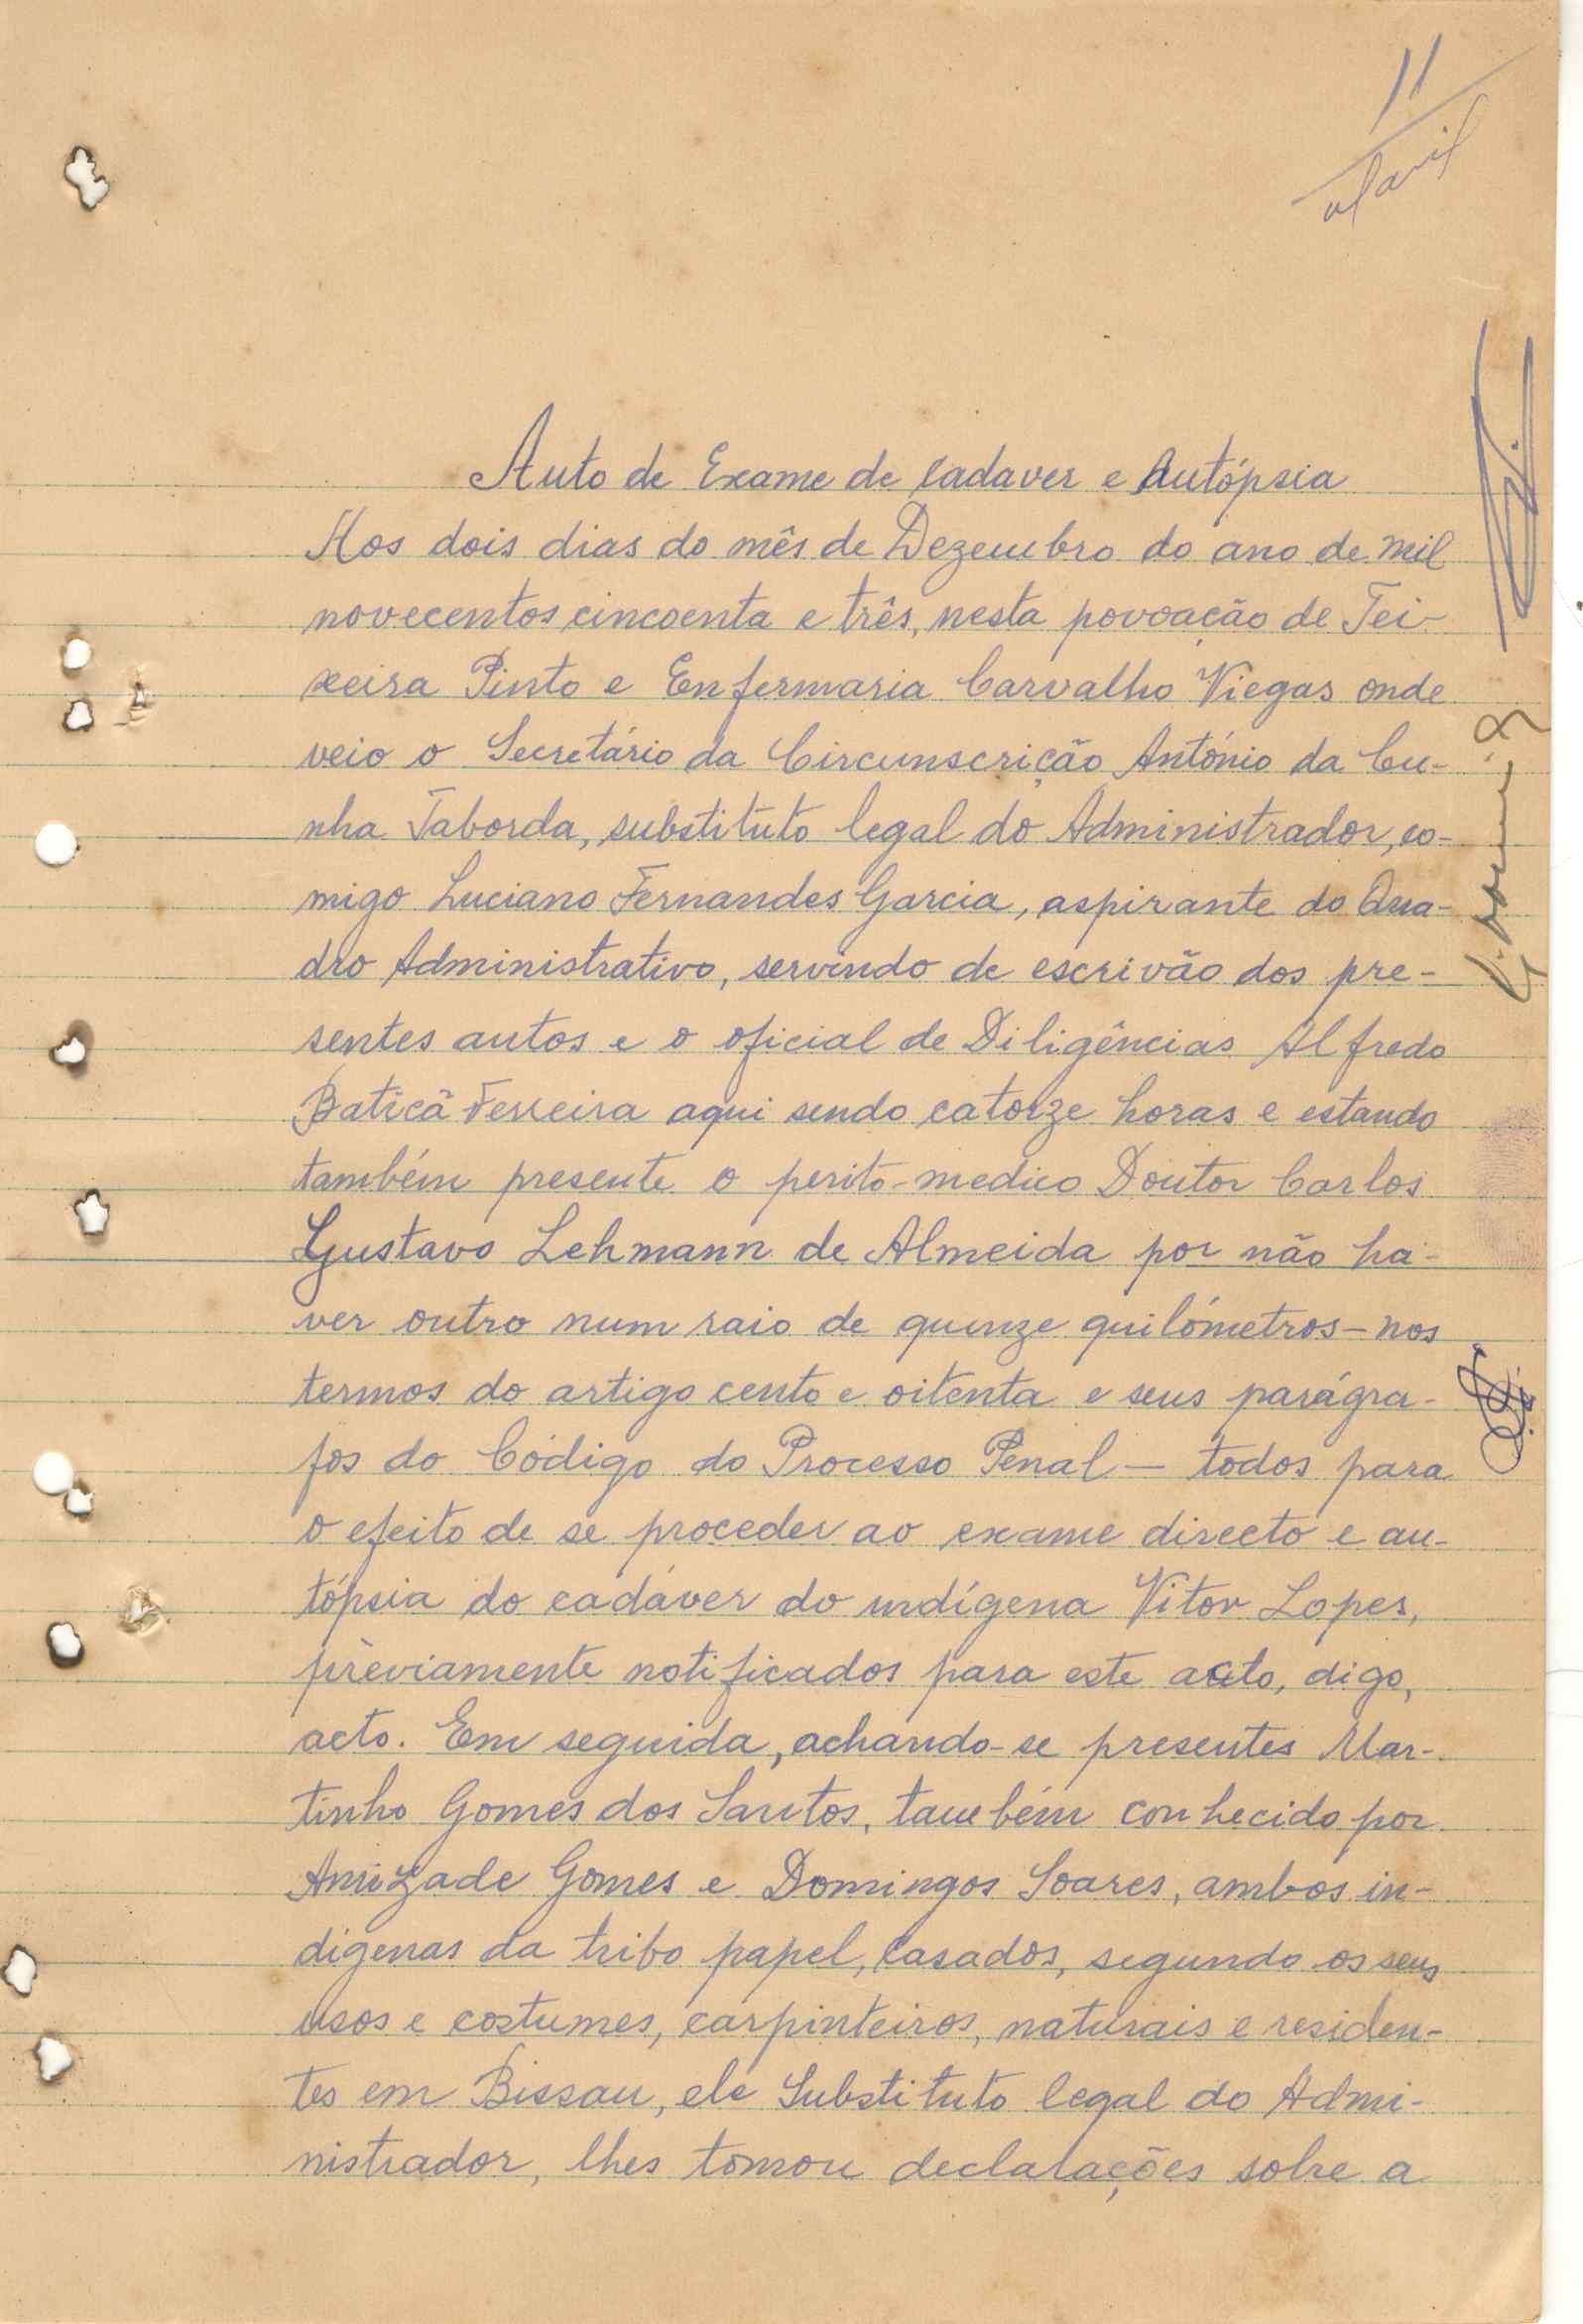 11
Auto de Exame de Cadaver e Autópsia
Aos dois dias do mês de Dezembro do ano de mil
novecentos cincoenta e três, nesta povoação de Tei-
xeira Pinto e Enfermaria Carvalho Viegas onde
veio o Secretário da Circunscrição António da Cu-
nha Taborda, substituto legal do Administrador, co-
migo Luciano Fernandes Garcia, aspirante do Qua-
dro Administrativo, servindo de escrivão dos pre-
sentes autos e o oficial de Diligências Alfredo
Baticã Ferreira aqui sendo catorze horas e estando
também presente o perito-medico Doutor Carlos
Gustavo Lehmann de Almeida por não ha-
ver outro num raio de quinze quilómetros - nos
termos do artigo cento e oitenta e seus parágra-
fos do Código do Processo Penal - todos para
o efeito de se proceder ao exame directo e au-
tópsia do cadáver do indígena Vitor Lopes,
prèviamente notificados para este auto, digo,
acto. Em seguida, achando-se presentes Mar-
tinho Gomes dos Santos, também conhecido por
Amizade Gomes e Domingos Soares, ambos in-
digenas da tribo papel, casados, segundo os seus
usos e costumes, carpinteiros, naturais e residen-
tes em Bissau, ele Substituto legal do Admi-
nistrador, lhes tomou declarações sobre a